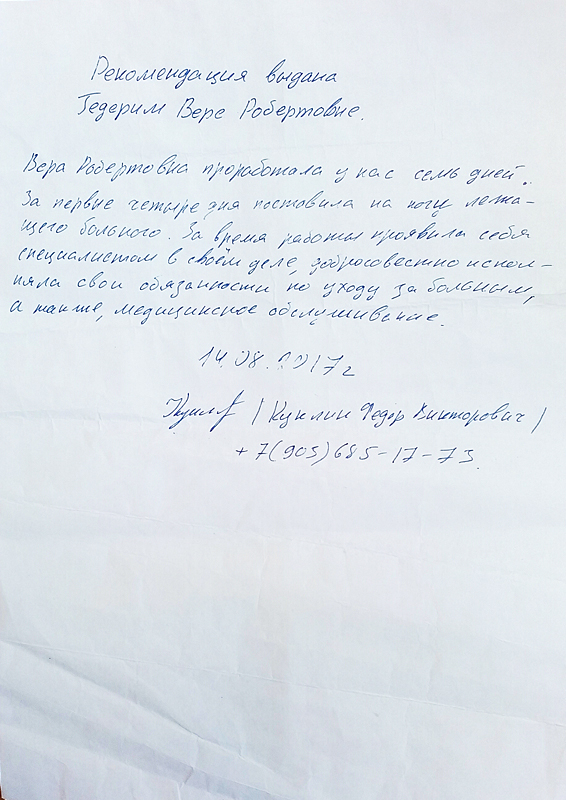 Рекомендация выдана
Гедерим Вере Робертовне.
Вера Робертовна проработала у нас семь дней.
За первые четыре дня поставила на ногу лежа-
щего больного. За время работы проявила себя
специалистом в своём деле, добросовестно испол-
няла свои обязанности по уходу за больным,
а также, медицинское обслуживание.
14.08.2017г
/ Куклин Федор Викторович /
+7(905)685-17-73.